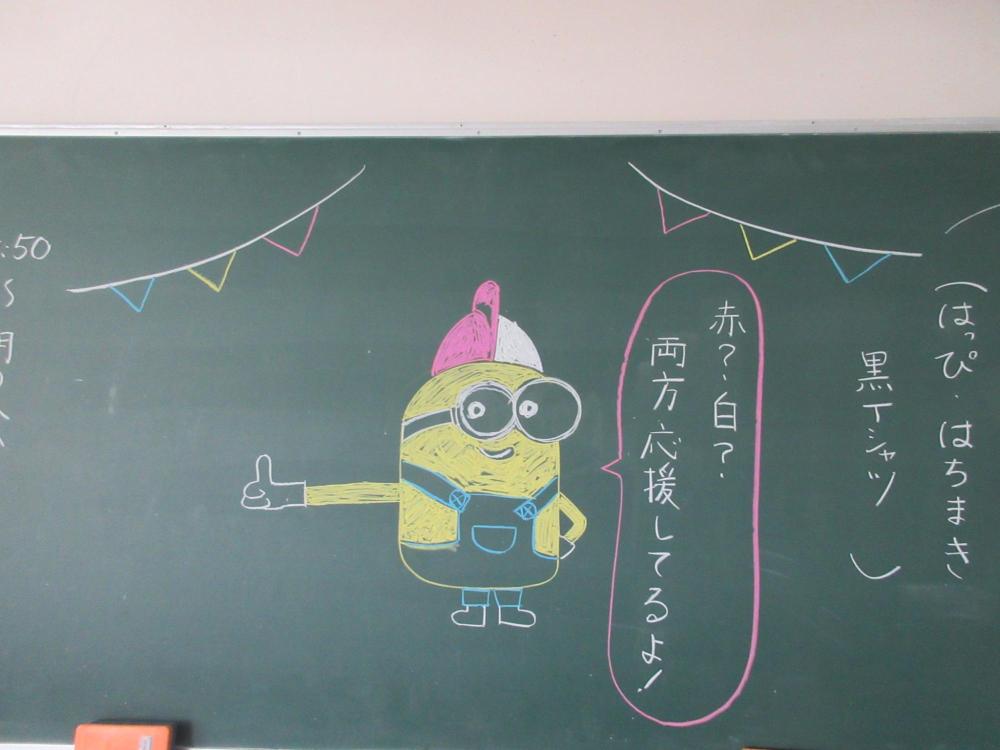 (はっぴ、はちまき
黒Tシャツ)
赤?白?
両方応援してるよ!
:50